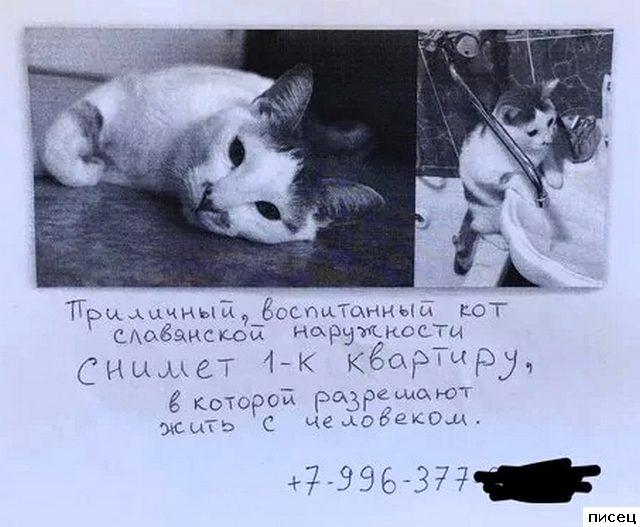 Приличный, воспитанный кот
славянской наружности
снимет 1-к квартиру,
в которой разрешают
жить с человеком.
+7-996-377
писец